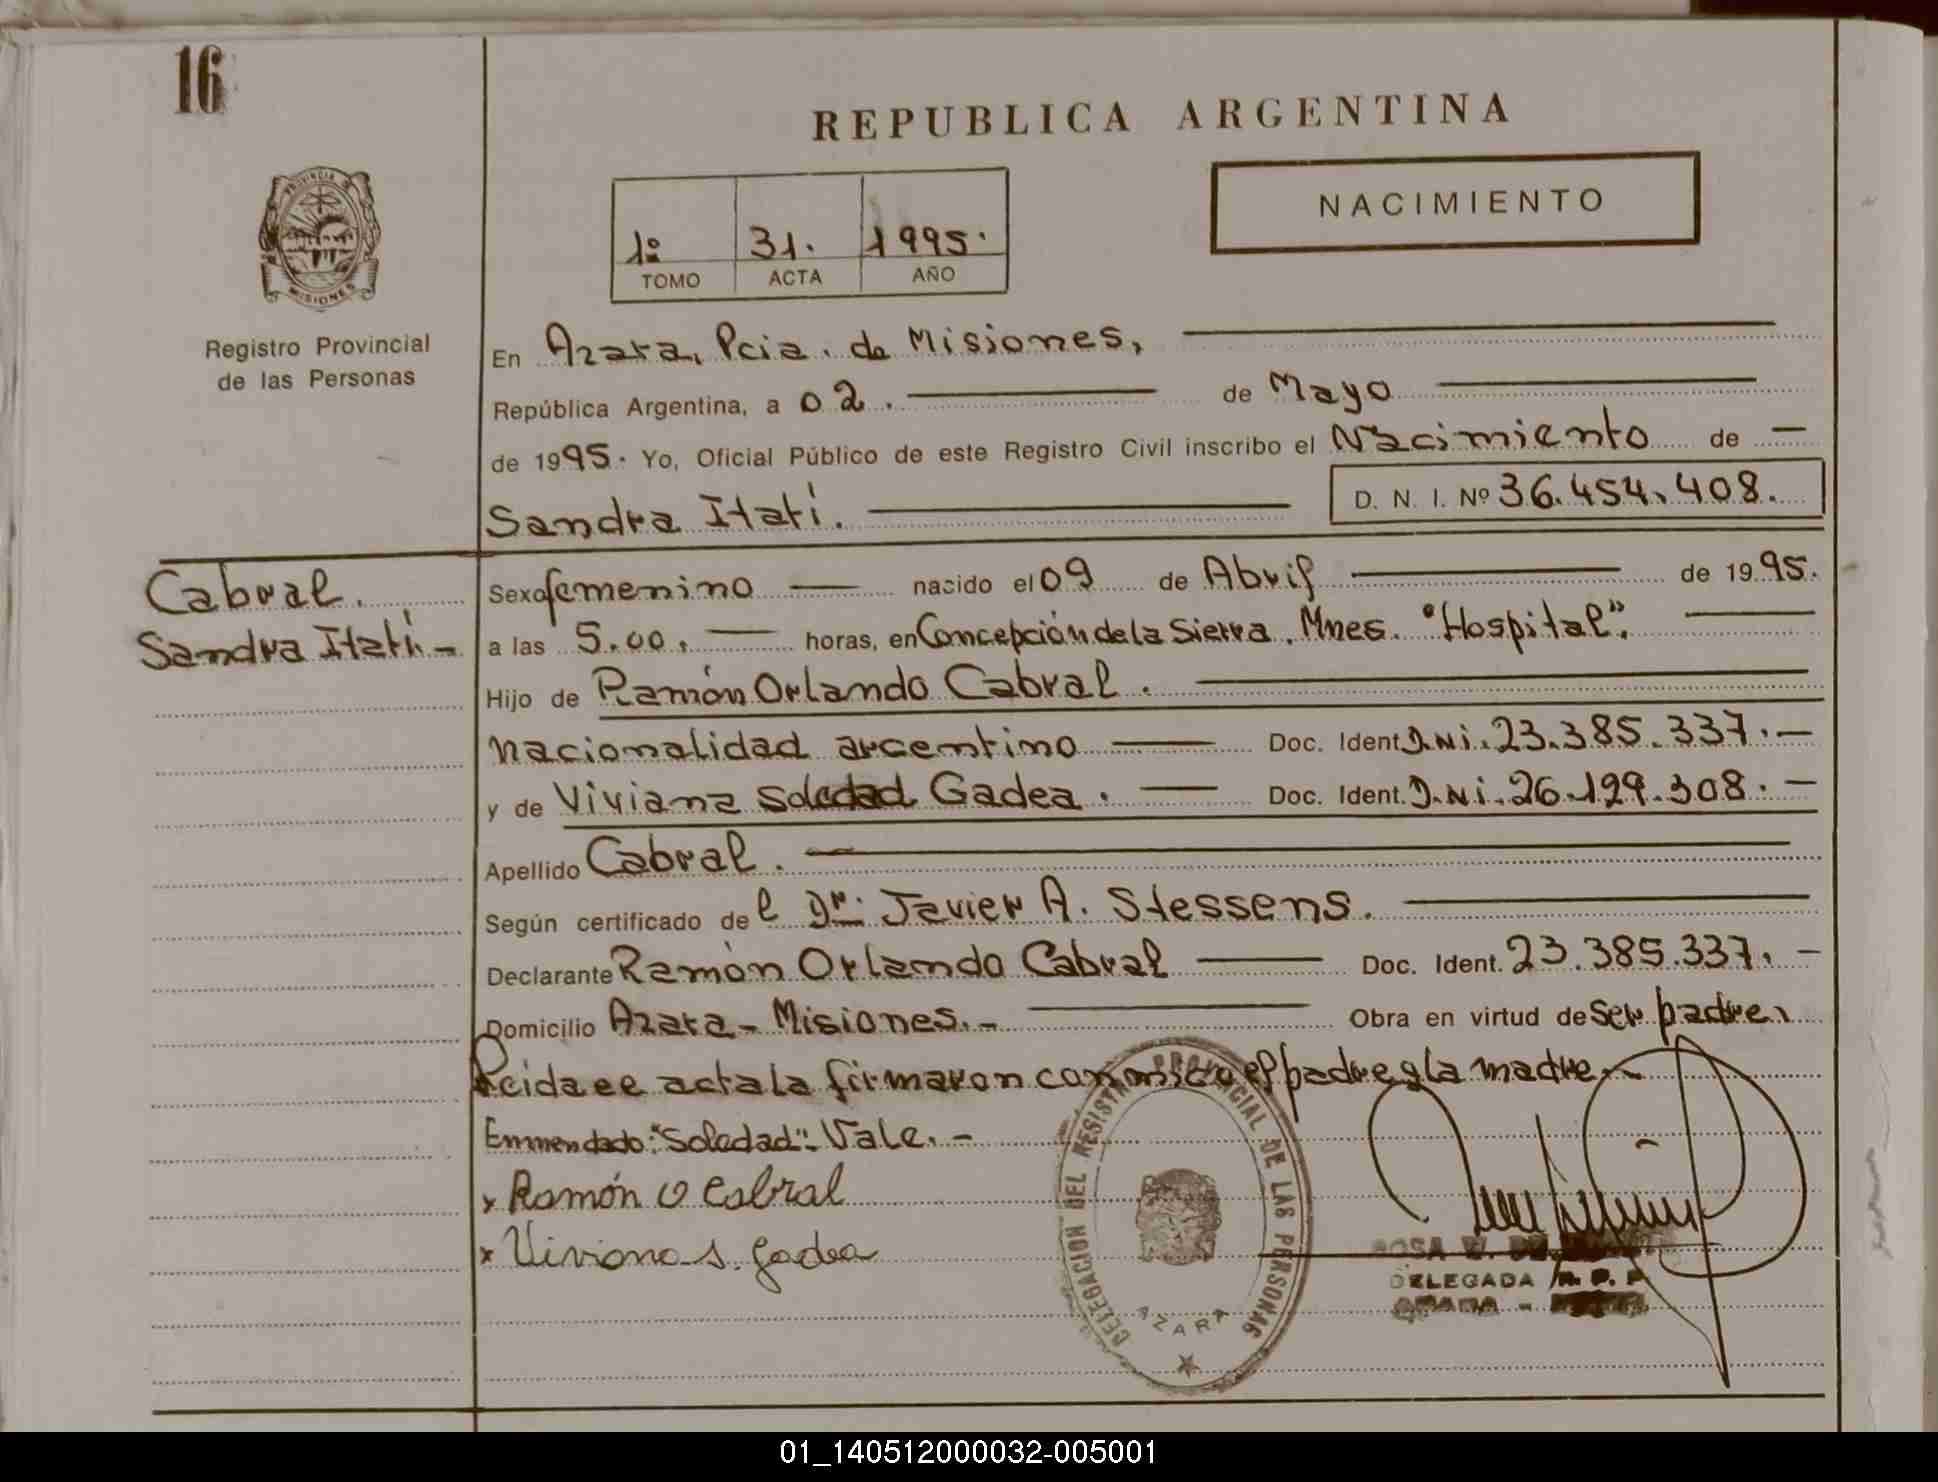 16
REPUBLICA ARGENTINA
PROVINCIA DE
MISIONES
Registro Provincial
de las Personas
NACIMIENTO
1º 31. 1995.
TOMO ACTA AÑO
En Azara, Pcia. de Misiones,
República Argentina, a 02. de Mayo
de 1995. Yo, Oficial Público de este Registro Civil inscribo el Nacimiento de —
Sandra Itatí. D. N. I. Nº 36.454.408.
Cabral.
Sandra Itatí. -
Sexo femenino — nacido el 09 de Abril de 1995.
a las 5.00. — horas, en Concepción de la Sierra. Mnes. "Hospital".
Hijo de Ramón Orlando Cabral.
nacionalidad argentino — Doc. Ident. D.N.i. 23.385.337. —
y de Viviana Soledad Gadea. — Doc. Ident. D.N.i. 26.199.308. —
Apellido Cabral.
Según certificado de l Dr. Javier A. Stessens.
Declarante Ramón Orlando Cabral — Doc. Ident. 23.385.337. —
Domicilio Azara - Misiones. - Obra en virtud de ser padre,
acta la firmaron conmigo el padre y la madre. -
Enmendado: "Soledad": Vale. -
x Ramón O Cabral
x Viviana S. Gadea
DELEGACION DEL REGISTRO PROVINCIAL DE LAS PERSONAS
AZARA
ROSA
DELEGADA R. P. P.
AZARA -
01_140512000032-005001